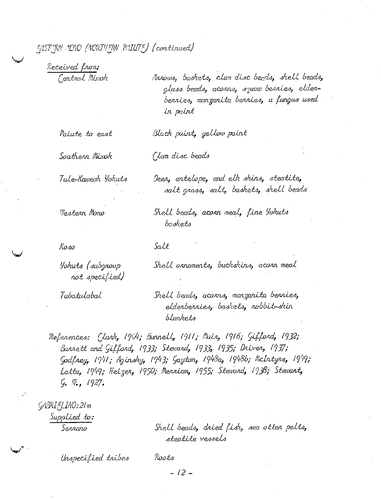 EASTERN MONO (NORTHERN PAIUTE) (continued)
Received from:
Central Miwok Arrows, baskets, clam disc beads, shell beads,
glass beads, acorns, squaw berries, elder-
berries, manzanita berries, a fungus used
in paint
Paiute to east Black paint, yellow paint
Southern Miwok Clam disc beads
Tule-Kaweah Yokuts Deer, antelope, and elk skins, steatite,
salt grass, salt, baskets, shell beads
Western Mono Shell beads, acorn meal, fine Yokuts
baskets
Koso Salt
Yokuts (subgroup Shell ornaments, buckskins, acorn meal
not specified)
Tubatulabal Shell beads, acorns, manzanita berries,
elderberries, baskets, rabbit-skin
blankets
References: Clark, 1904; Bunnell, 1911; Muir, 1916; Gifford, 1932;
Barrett and Gifford, 1933; Steward, 1933, 1935; Driver, 1937;
Godfrey, 1941; Aginsky, 1943; Gayton, 1948a, 1948b; McIntyre, 1949;
Latta, 1949; Heizer, 1950; Merriam, 1955; Steward, 1938; Stewart,
G. R., 1927.
GABRIELINO: 21m
Supplied to:
Serrano Shell beads, dried fish, sea otter pelts,
steatite vessels
Unspecified tribes Roots
- 12 -